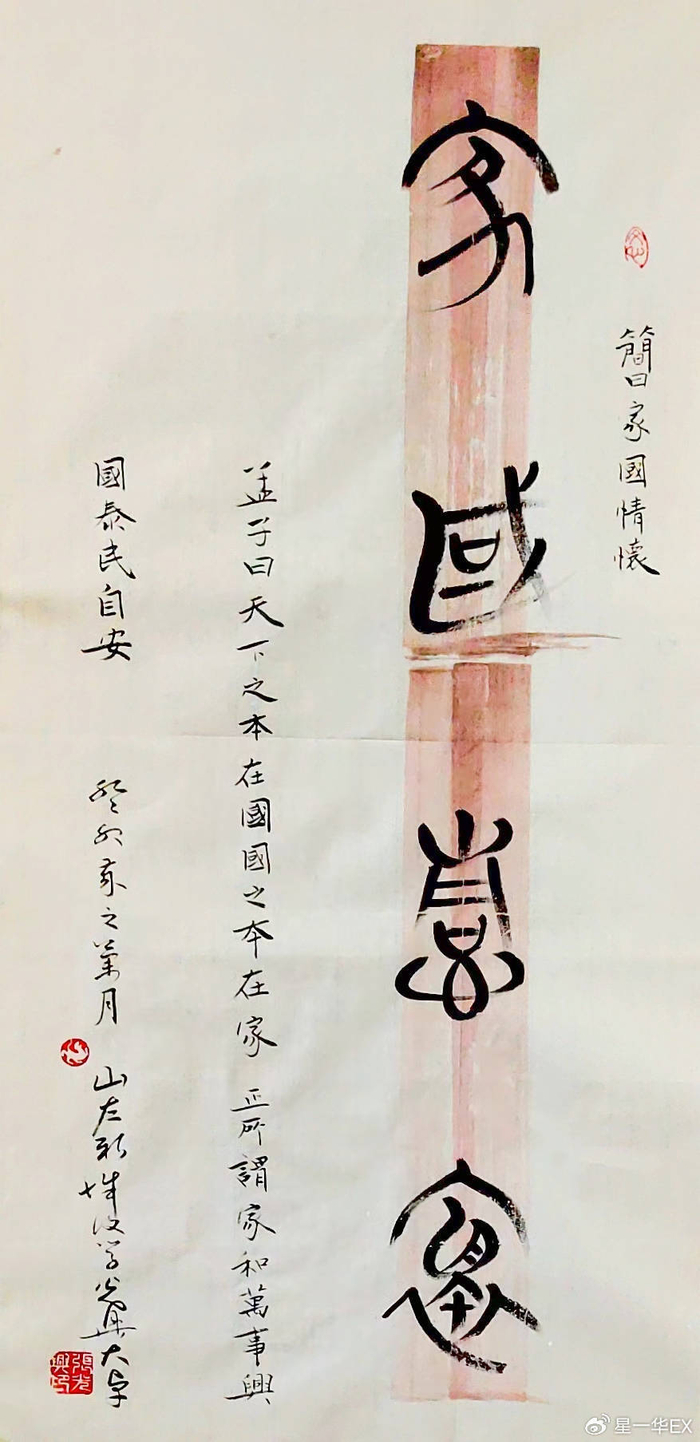 簡曰家國情懷
家國情懷
孟子曰天下之本在國國之本在家正所謂家和萬事興
國泰民自安 癸卯
之 月 山左
大字
星一华EX